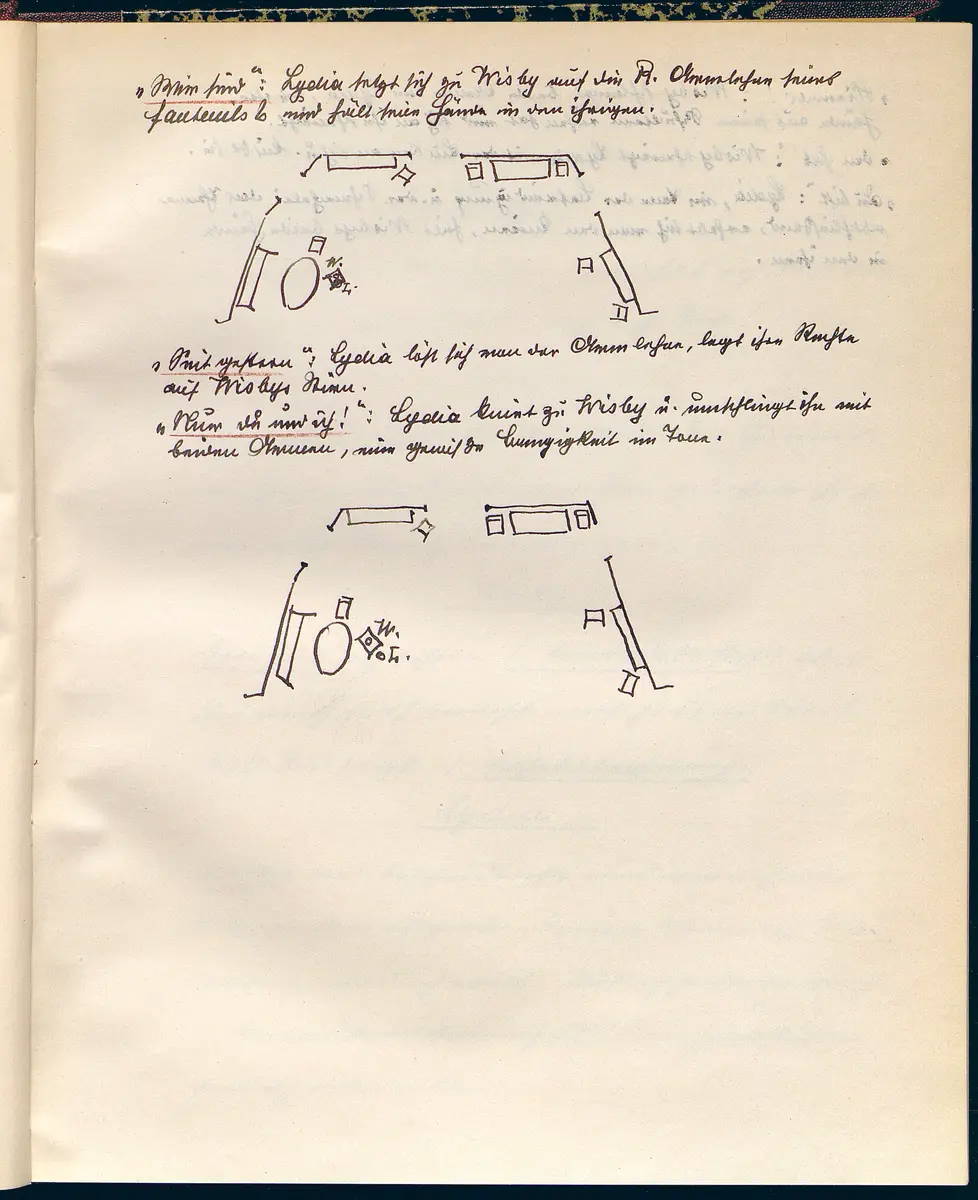 „Wir sind“: Lydia setzt sich zu Wisby auf die R. Armlehne seines
fauteuils u hält seine Hände in den ihrigen.
W.
L.
„Seit gestern“: Lydia löst sich von der Armlehne, legt ihre Rechte
auf Wisbys Stirn.
„Nur du und ich!“: Lydia kniet zu Wisby u. umschlingt ihn mit
beiden Armen, eine gewisse Bangigkeit im Tone.
W.
L.